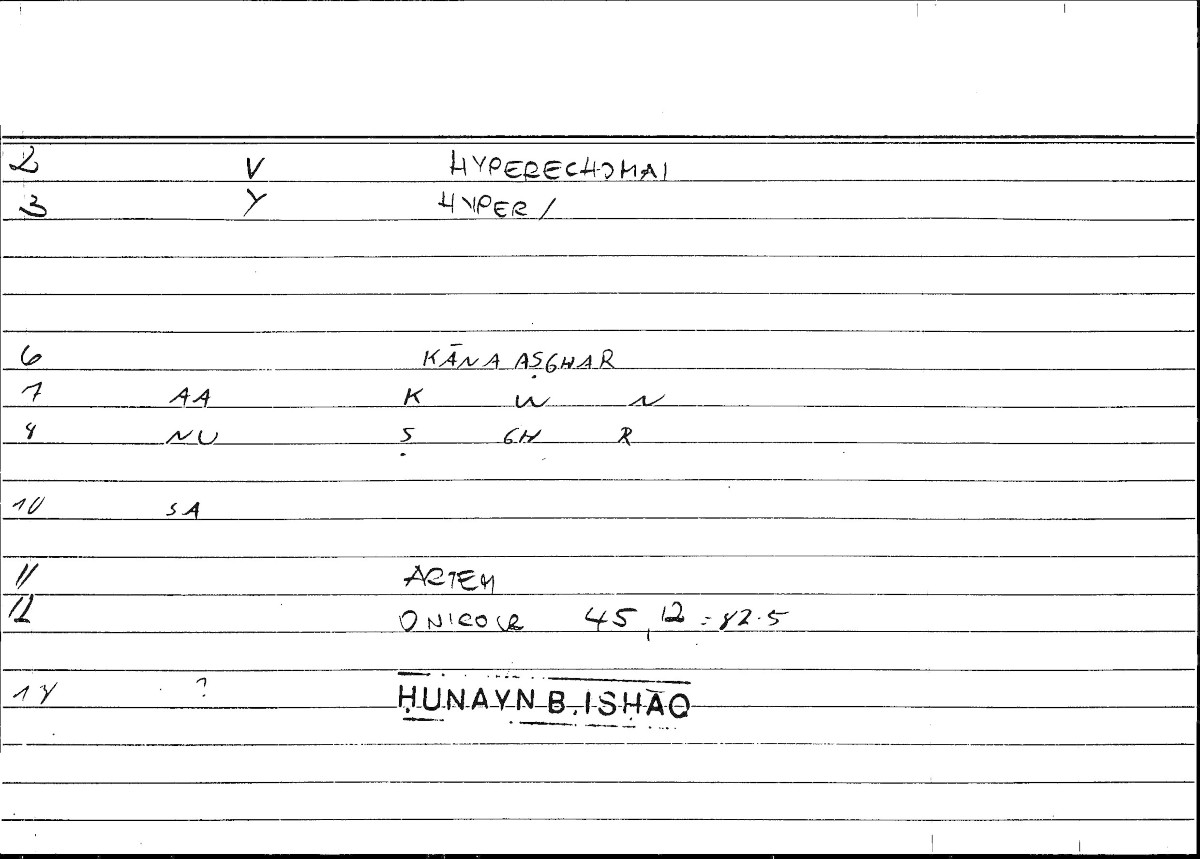 2 V HYPERECHOMAI
3 Y HYPER/
6 KĀNA AṢGHAR
7 AA K W N
8 NU Ṣ GH R
10 SA
11 ARTEM
12 45,12 = 82.5
14 ? ḤUNAYN B. ISḤĀQ